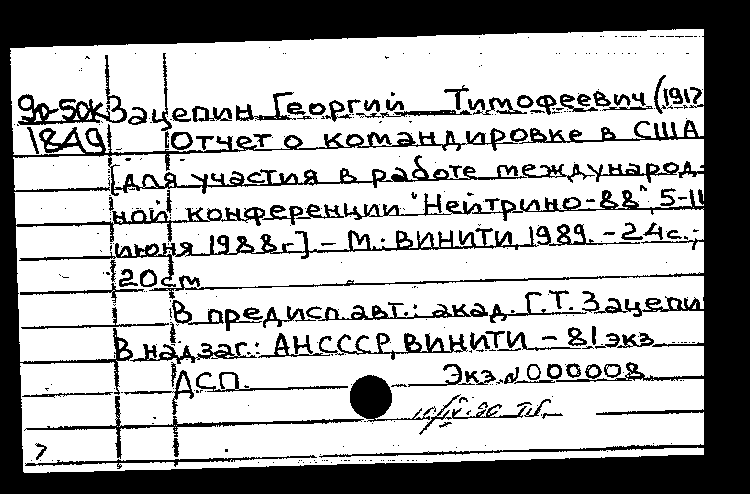 90-50к Зацепин Георгий Тимофеевич (1917
1849 Отчет о командировке в США
[для участия в работе международ-
ной конференции "Нейтрино-88", 5-11
июня 1988г]. - М.: ВИНИТИ, 1989. - 24с.;
20см
В предисл. авт.: акад. Г.Т. Зацепин
В надзаг.: АН СССР, ВИНИТИ - 81экз
ДСП. Экз. № 000008
10/IV-90